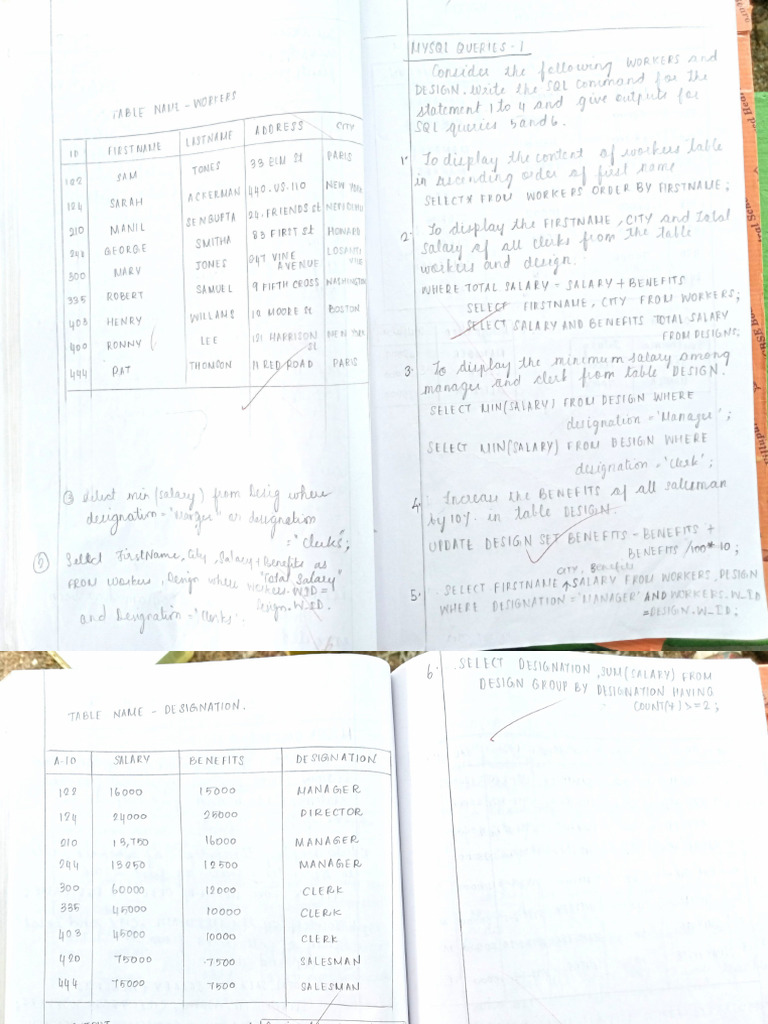 TABLE NAME - WORKERS
ID FIRSTNAME LASTNAME ADDRESS CITY
102 SAM JONES 33 ELM St PARIS
124 SARAH ACKERMAN 440. US. 110 NEW YORK
210 MANIL SENGUPTA 24. FRIENDS St
GEORGE SMITHA 83 FIRST St HOWARD
300 MARV JONES 247 VINE AVENUE
335 ROBERT SAMUEL 9 FIFTH CROSS WASHINGTON
403 HENRY WILLAMS 12 MOORE St BOSTON
400 RONNY LEE 121 HARRISON St NEW YORK
444 PAT THOMSON 11 RED ROAD PARIS
③ Select min (salary) from Desig where
designation = "Manger" or designation
= "Clerks";
⑤ Select FirstName, City, Salary + Benefits as
"Total Salary"
FROM Workers, Design where Workers.W_ID =
Design.W_ID.
and Designation = "Clerks".
MYSQL QUERIES - 1
Consider the following WORKERS and
DESIGN. Write the SQL command for the
statement 1 to 4 and give outputs for
SQL queries 5 and 6.
1. To display the content of workers table
in ascending order of first name
SELECT * FROM WORKERS ORDER BY FIRSTNAME;
2. To display the FIRSTNAME, CITY and total
salary of all clerks from the table
workers and design.
WHERE TOTAL SALARY = SALARY + BENEFITS
SELECT FIRSTNAME, CITY FROM WORKERS;
SELECT SALARY AND BENEFITS TOTAL SALARY
FROM DESIGNS;
3. To display the minimum salary among
manager and clerk from table DESIGN.
SELECT MIN(SALARY) FROM DESIGN WHERE
designation = 'Manager';
SELECT MIN(SALARY) FROM DESIGN WHERE
designation = 'Clerk';
4. Increase the BENEFITS of all salesman
by 10% in table DESIGN.
UPDATE DESIGN SET BENEFITS - BENEFITS +
BENEFITS /100* 10;
CITY, Benefits
5. SELECT FIRSTNAME, SALARY FROM WORKERS, DESIGN
WHERE DESIGNATION = 'MANAGER' AND WORKERS. W_ID
= DESIGN. W_ID;
TABLE NAME - DESIGNATION.
A-ID SALARY BENEFITS DESIGNATION
122 16000 15000 MANAGER
124 24000 25000 DIRECTOR
210 15,750 16000 MANAGER
244 13250 12500 MANAGER
300 60000 12000 CLERK
335 45000 10000 CLERK
403 45000 10000 CLERK
420 75000 7500 SALESMAN
444 75000 7500 SALESMAN
6. SELECT DESIGNATION, SUM(SALARY) FROM
DESIGN GROUP BY DESIGNATION HAVING
COUNT(*) >= 2;